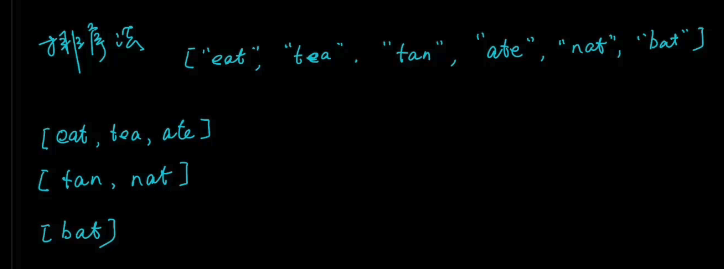 排序法 ["eat", "tea". "tan", "ate", "nat", "bat"]
[eat, tea, ate]
[tan, nat]
[bat]